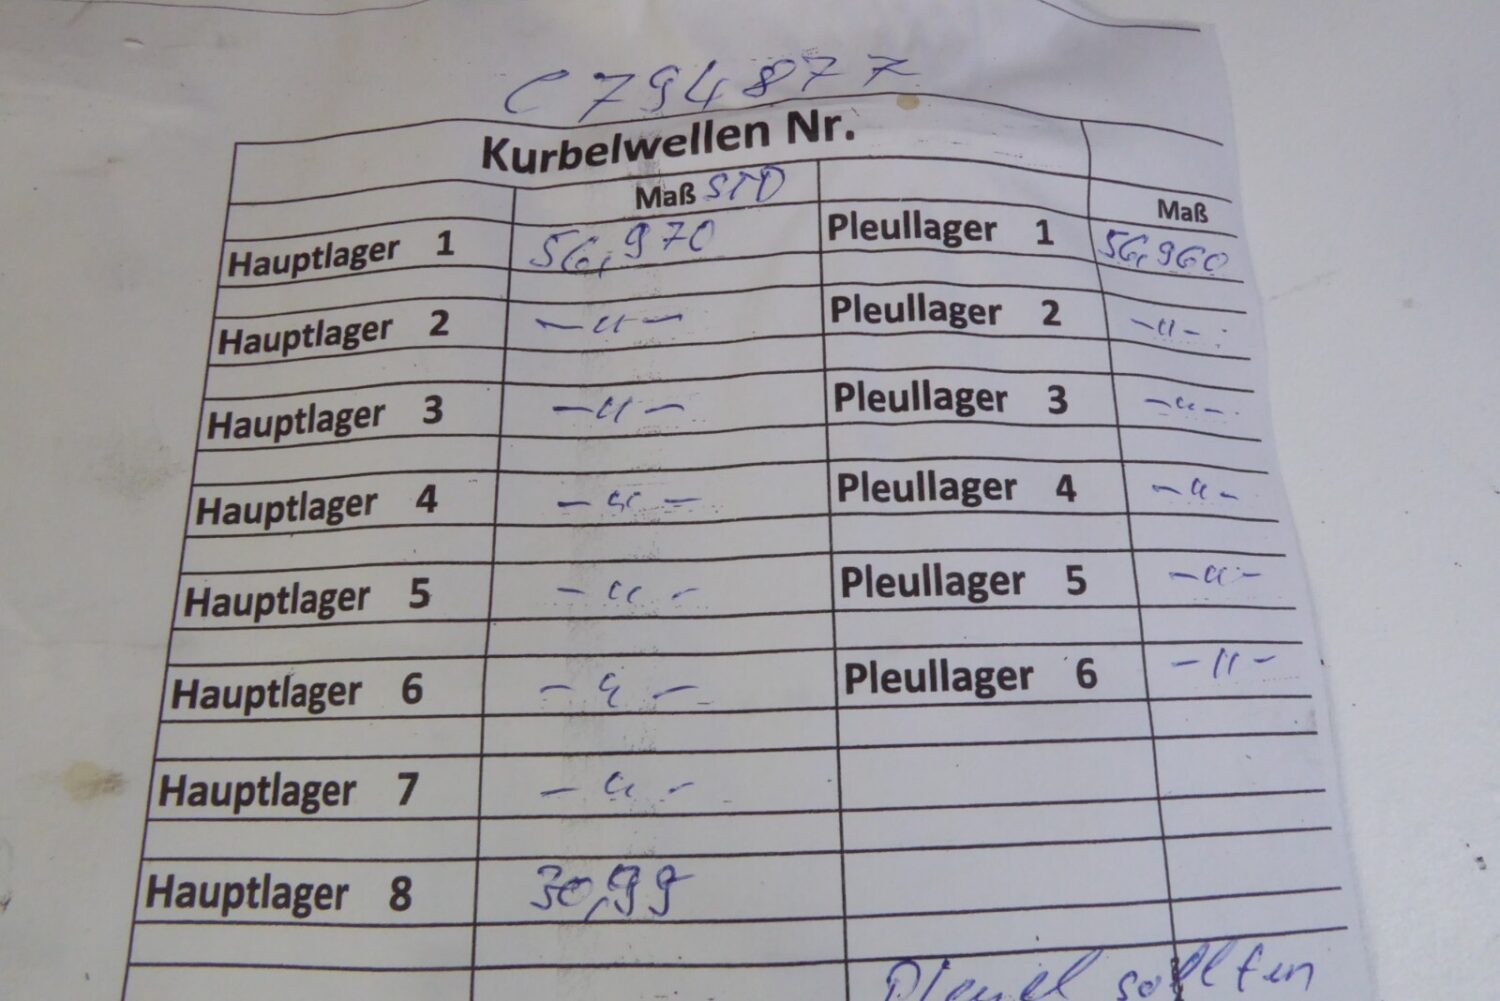 C794877
Kurbelwellen Nr.
Maß STD Maß
Hauptlager 1 56,970 Pleullager 1 56,960
Hauptlager 2 –"– Pleullager 2 –"–
Hauptlager 3 –"– Pleullager 3 –"–
Hauptlager 4 –"– Pleullager 4 –"–
Hauptlager 5 –"– Pleullager 5 –"–
Hauptlager 6 –"– Pleullager 6 –"–
Hauptlager 7 –"–
Hauptlager 8 30,99
Pleuel sollten